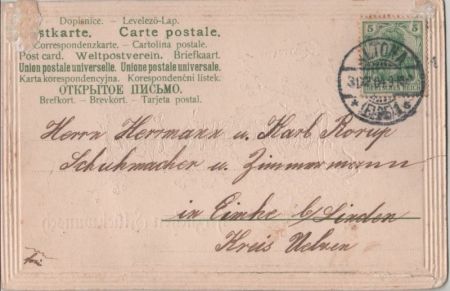 Dopisnice. – Levelező-Lap.
Postkarte. Carte postale.
Correspondenzkarte. – Cartolina postale.
Post card. Weltpostverein. Briefkaart.
Union postale universelle. Unione postale universale.
Karta korespondencyjna. Korespondenční lístek.
ОТКРЫТОЕ ПИСЬМО.
Brefkort. – Brevkort. – Tarjeta postal.
5 5
ALTONA
Herrn Herrmann u. Karb Rorup
Schuhmacher u. Zimmermann
in Eimke b/Linden
Kreis Uelzen